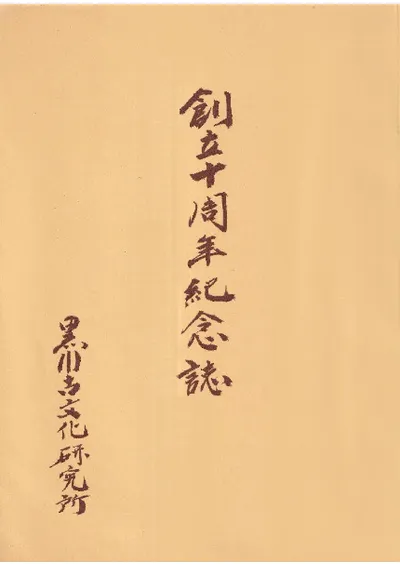 創立十周年紀念誌
黒川古文化研究所